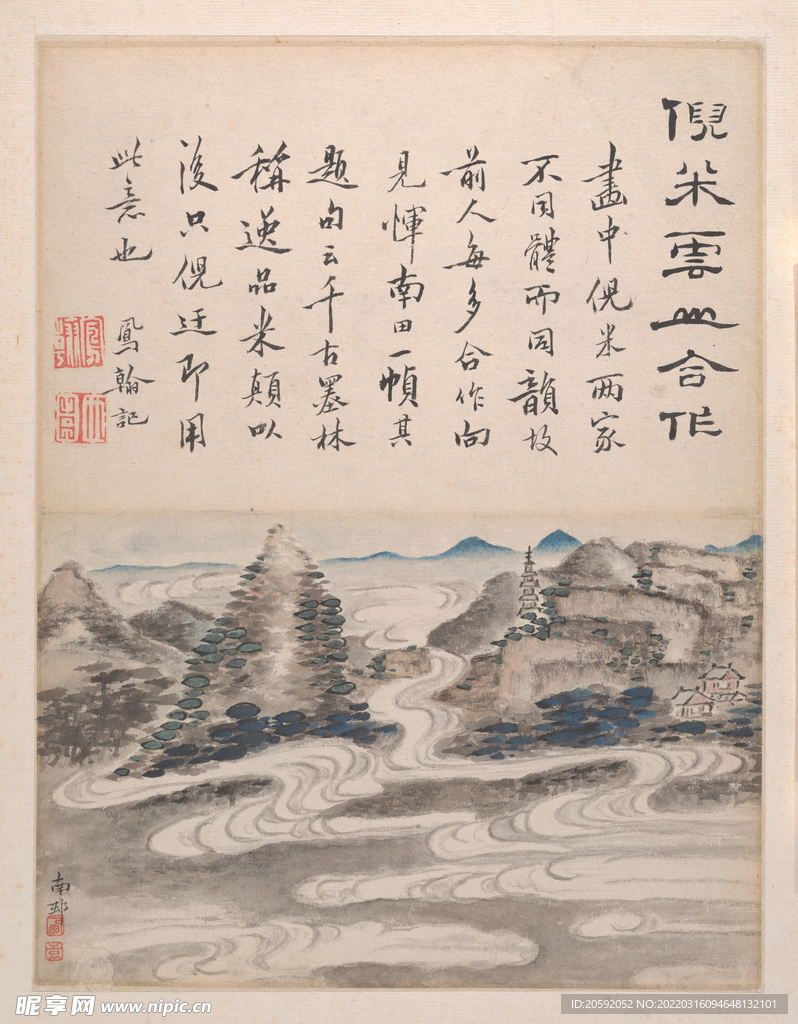 倪米雲山合作
畫中倪米两家
不同體而同韻故
前人每多合作向
見惲南田一幀其
題句云千古墨林
稱逸品米顛以
後只倪迂即用
此意也
鳳翰記
南邨
昵享网 www.nipic.cn
ID:20592052 NO:20220316094648132101